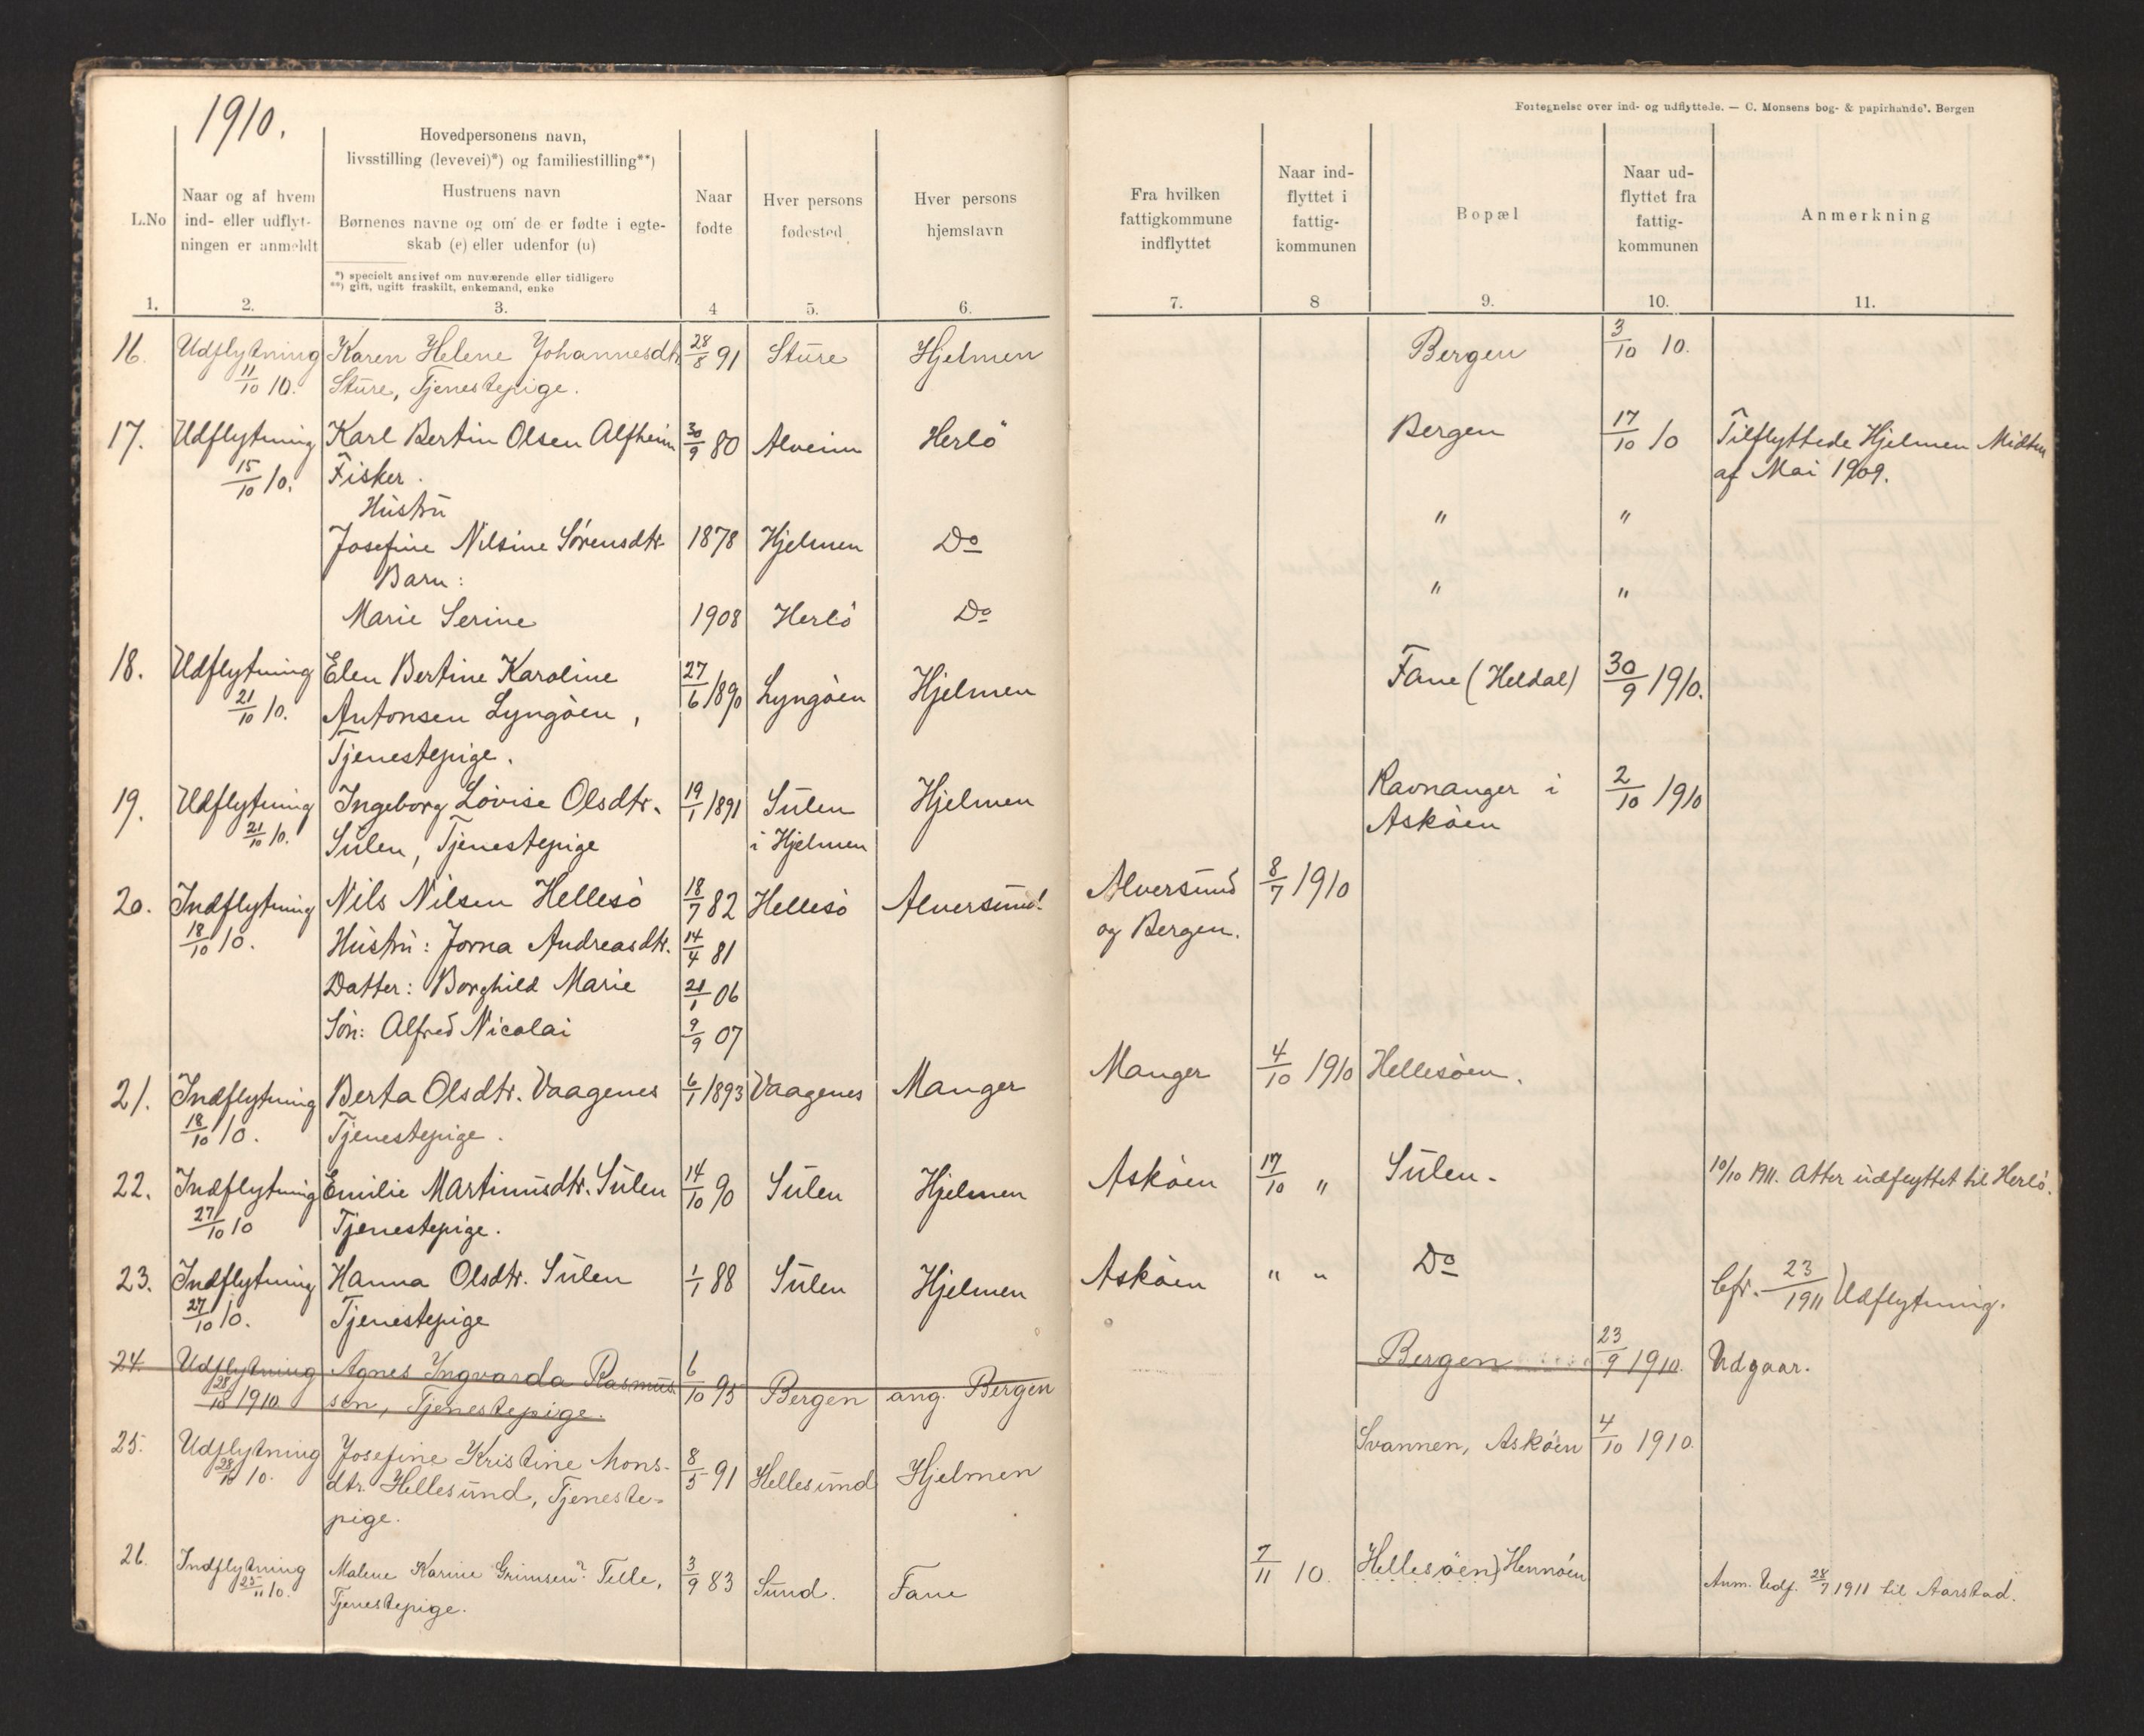 1910.
Fortegnelse over ind- og udflyttede. — C. Monsens bog- & papirhandel. Bergen
L.No
Naar og af hvem
ind- eller udflyt-
ningen er anmeldt
Hovedpersonens navn,
livsstilling (levevei)*) og familiestilling**)
Hustruens navn
Børnenes navne og om de er fødte i egte-
skab (e) eller udenfor (u)
*) specielt angivet om nuværende eller tidligere
**) gift, ugift fraskilt, enkemand, enke
Naar
fødte
Hver persons
fødested
Hver persons
hjemstavn
Fra hvilken
fattigkommune
indflyttet
Naar ind-
flyttet i
fattig-
kommunen
Bopæl
Naar ud-
flyttet fra
fattig-
kommunen
Anmerkning
1. 2. 3. 4 5. 6. 7. 8 9. 10. 11.
16. Udflytning Karen Helene Johannesdtr. 28/8 91 Sture Hjelmen Bergen 3/10 10.
11/10 10. Sture, Tjenestepige.
17. Udflytning Karl Bertin Olsen Alfheim 30/9 80 Alveim Herlö Bergen 17/10 10 Tilflyttede Hjelmen Midten
15/10 10. Fisker. af Mai 1909.
Hustru " "
Josefine Nilsine Sörensdtr. 1878 Hjelmen Do
Barn: " "
Marie Serine 1908 Herlö Do
18. Udflytning Elen Bertine Karoline 27/6 1890 Lyngöen Hjelmen Fane (Heldal) 30/9 1910.
21/10 10. Antonsen Lyngöen,
Tjenestepige.
19. Udflytning Ingeborg Lovise Olsdtr. 19/1 1891 Sulen Hjelmen Ravnanger i 2/10 1910
21/10 10. Sulen, Tjenestepige i Hjelmen Asköen
20. Indflytning Nils Nilsen Hellesö 18/7 82 Hellesö Alversund. Alversund 8/7 1910
18/10 10. Hustru: Jorna Andreasdtr. 14/4 81 og Bergen.
Datter: Borghild Marie 21/1 06
Sön: Alfred Nicolai 9/9 07
21. Indflytning Berta Olsdtr. Vaagenes 6/1 1893 Vaagenes Manger Manger 4/10 1910 Hellesöen.
18/10 10. Tjenestepige.
22. Indflytning Emilie Martinusdtr. Sulen 14/10 90 Sulen Hjelmen Asköen 17/10 " Sulen. 10/10 1911. Atter udflyttet til Herlö.
27/10 10 Tjenestepige.
23. Indflytning Hanna Olsdtr. Sulen 1/1 88 Sulen Hjelmen Asköen " " Do Cfr. 23/1911 Udflytning.
27/10 10. Tjenestepige
24. Udflytning Agnes Ingvarda Rasmus- 6/10 95 Bergen ang. Bergen Bergen 23/9 1910. Udgaar.
28/10 1910 sen, Tjenestepige.
25. Udflytning Josefine Kristine Mons- 8/5 91 Hellesund Hjelmen Svannen, Asköen 4/10 1910.
28/10 10. dtr. Hellesund, Tjeneste-
pige.
26. Indflytning Malene Karine Grimsen? Telle, 3/9 83 Sund. Fane 7/11 10. Hellesöen) Hennöen Anm. Udf. 28/7 1911 til Aarstad.
25/11 10. Tjenestepige.